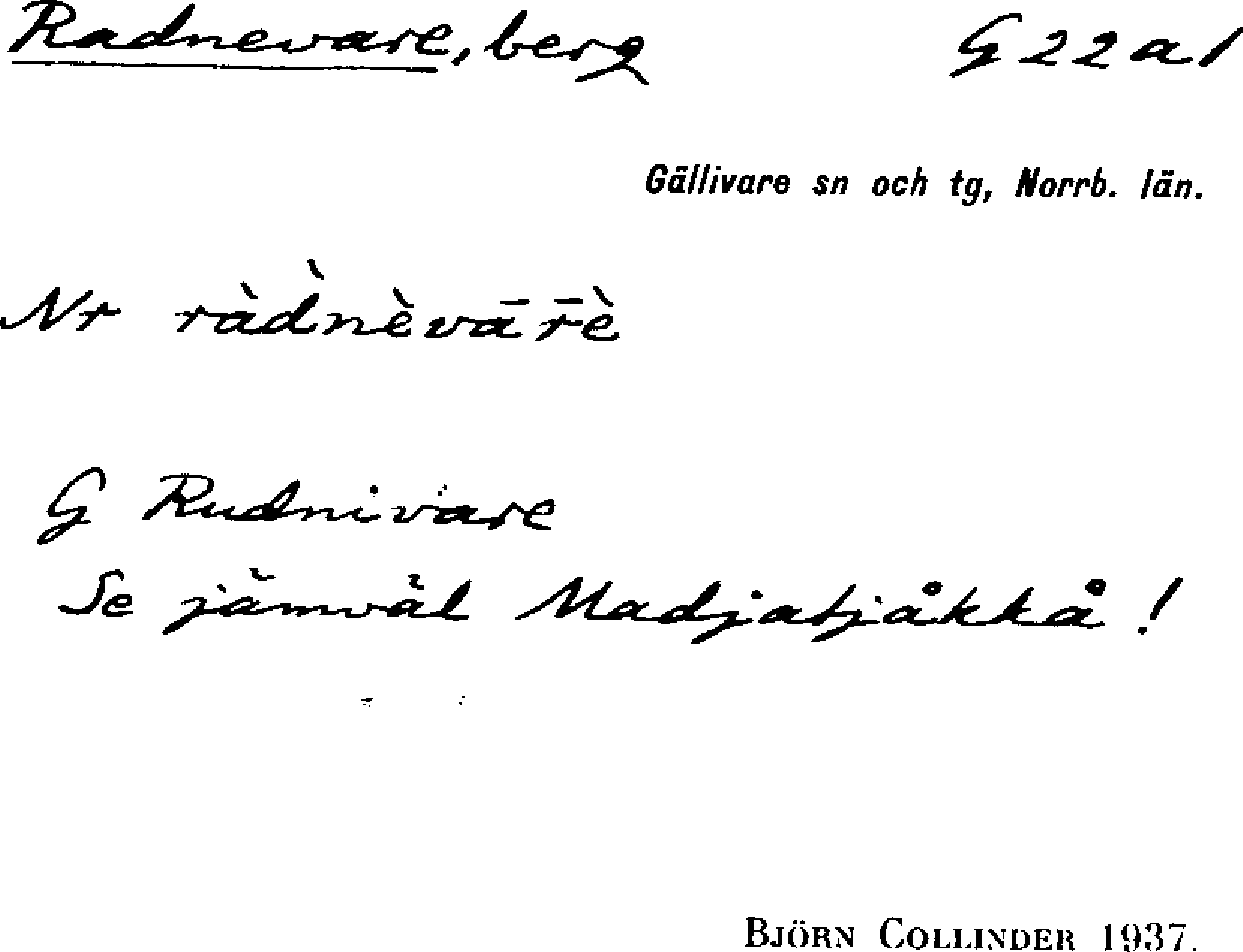 Radnevare, berg G 22 a 1
Gällivare sn och tg, Norrb. län.
Nr ràd̀nèvār̄è
G Rudnivare
Se jämväl Madjatjåkkå!
BJÖRN COLLINDER 1937.